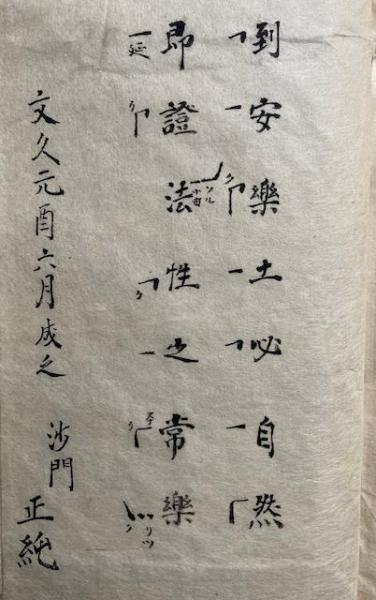 到安樂土必自然
即證法性之常樂
文久元酉六月成之
沙門 正純